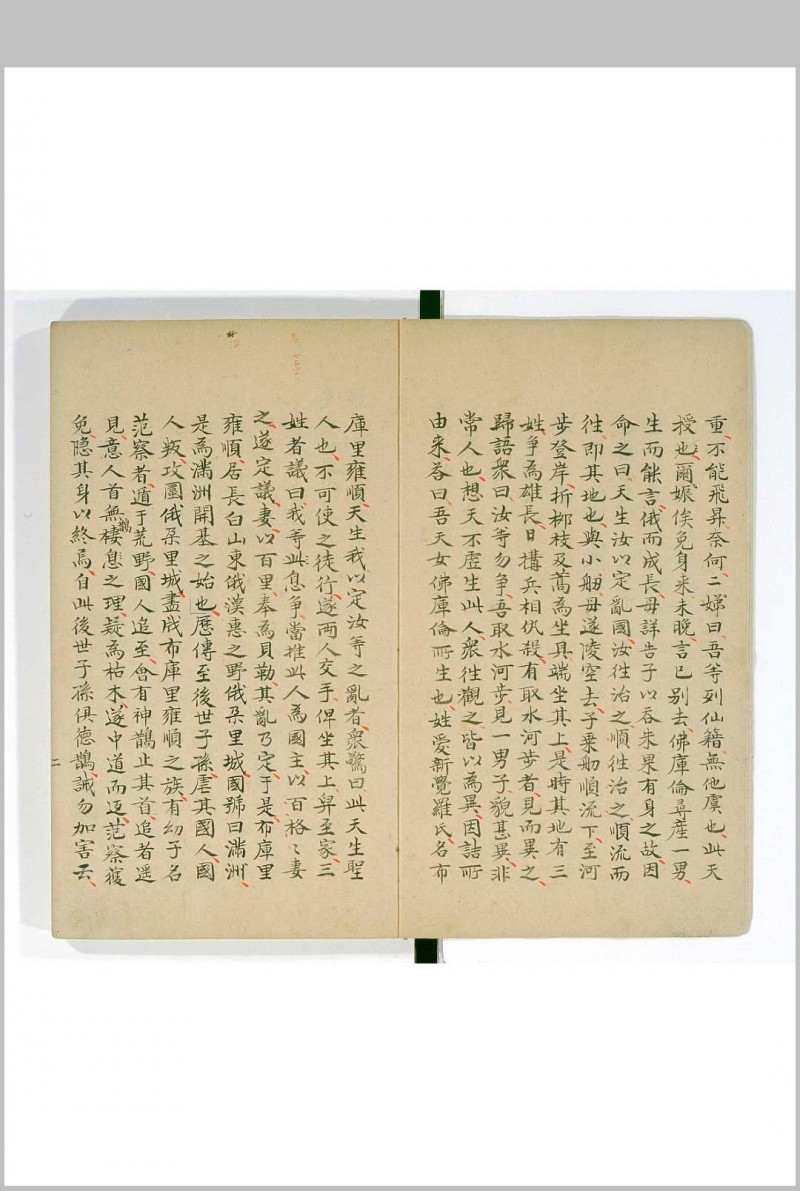 重不能飛昇奈何二娣曰吾等列仙籍無他虞也此天
授也爾娠俟免身来未晚言已别去佛庫倫尋産一男
生而能言俄而成長母詳告子以吞朱果有身之故因
命之曰天生汝以定亂國汝徃治之順徃治之順流而
徃即其地也與小舠母遂凌空去子乗舠順流下至河
步登岸折柳枝及蒿為坐具端坐其上是時其地有三
姓爭為雄長日搆兵相仇殺有取水河步者見而異之
歸語衆曰汝等勿爭吾取水河步見一男子貌甚異非
常人也想天不虚生此人衆徃觀之皆以為異因詰所
由来荅曰吾天女佛庫倫所生也姓愛新覺羅氏名布
庫里雍順天生我以定汝等之亂者衆驚曰此天生聖
人也不可使之徒行遂兩人交手俾坐其上舁至家三
姓者議曰我等此息爭當推此人為國主以百格〻妻
之遂定議妻以百里奉為貝勒其亂乃定于是布庫里
雍順居長白山東俄漠惠之野俄朶里城國號曰滿洲
是為滿洲開基之始也歷傳至後世子孫虐其國人國
人叛攻圍俄朶里城盡戕布庫里雍順之族有幼子名
范察者遁于荒野國人追至會有神鵲止其首追者遥
見意人首無鵲棲息之理疑為枯木遂中道而返范察獲
免隐其身以終焉自此後世子孫俱德鵲誡勿加害云
二